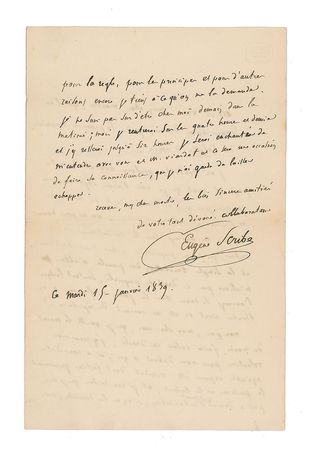 pour la règle, pour le principe et pour d'autres
raisons encore je tiens à ce qu'on me la demande.
je ne suis pas sûr d'être chez moi demain dans la
matinée; mais je rentrerai sur les quatre heures et demie
et j'y resterai jusqu'à six heures je serai enchanté de
m'entendre avec vous et M Viardot et ce sera une occasion
de faire sa connaissance, que je n'ai garde de laisser
échapper.
recevez, les bien sincères amitiés
de votre tout dévoué collaborateur
Eugène Scribe
Ce mardi 15 janvier 1839.